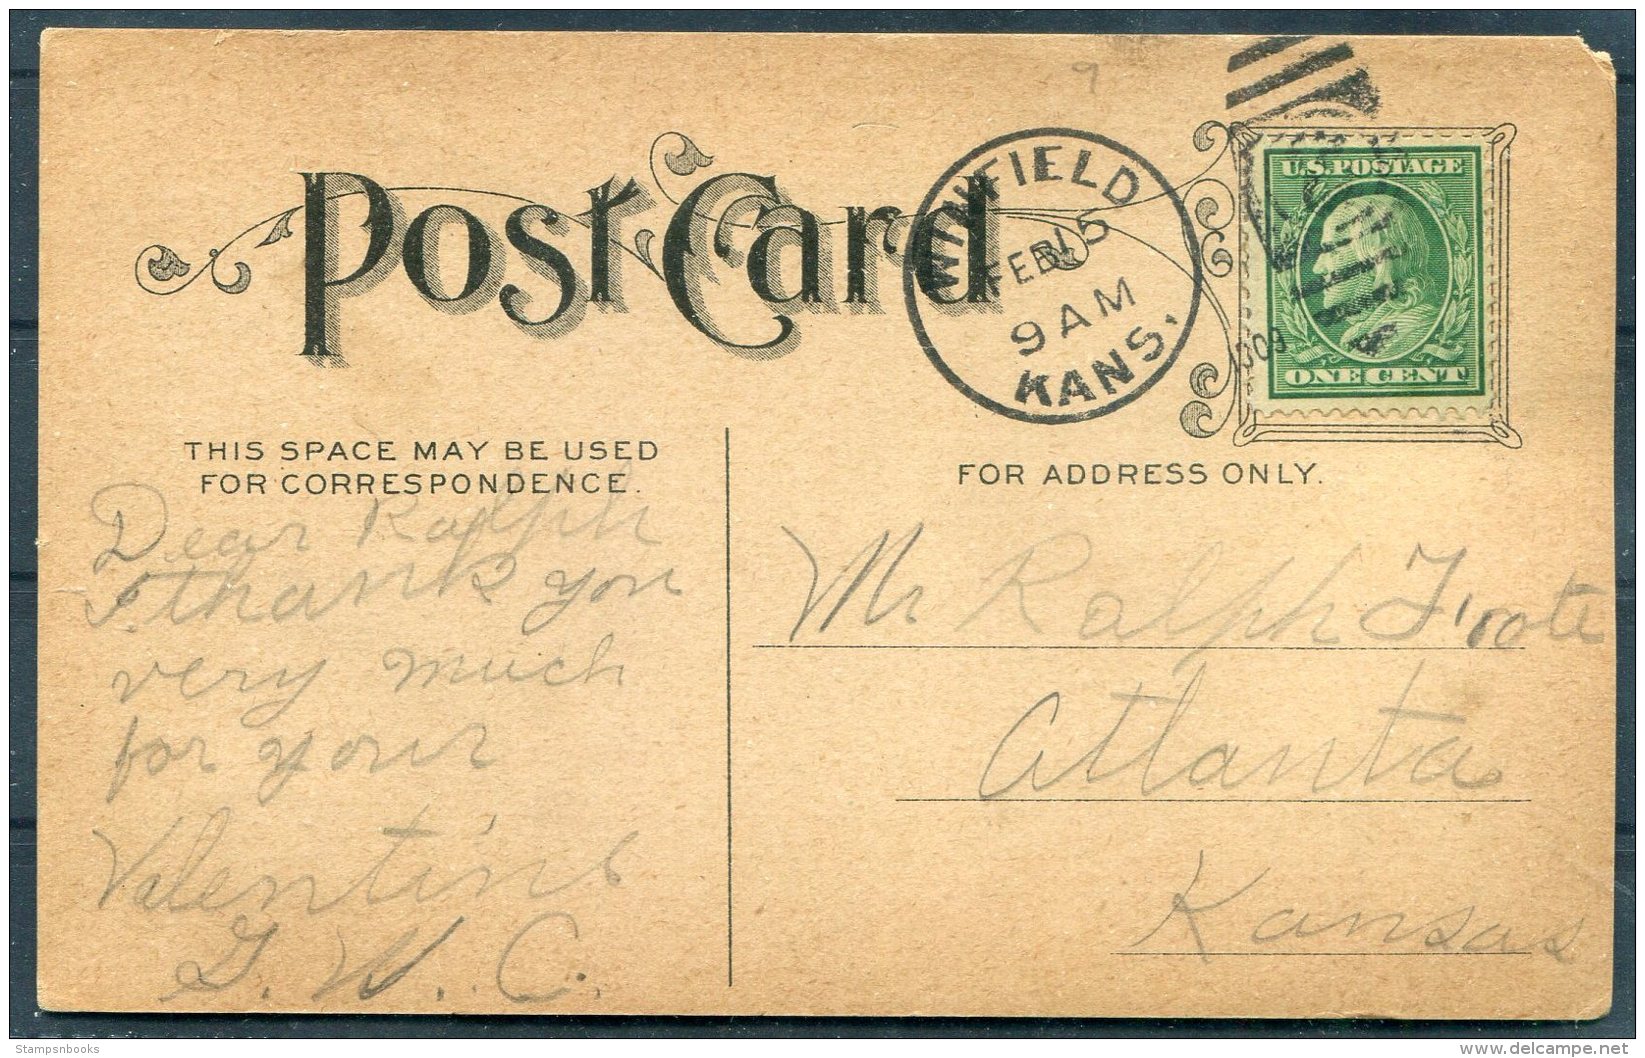 9
Post Card
WINFIELD
FEB 15
9 AM
KANS.
1909
U.S. POSTAGE
ONE CENT
THIS SPACE MAY BE USED
FOR CORRESPONDENCE.
FOR ADDRESS ONLY.
Dear Ralph
I thank you
very much
for your
Valentine
G. W. C.
Mr Ralph Froote
Atlanta
Kansas
Stampsnbooks
www.delcampe.net